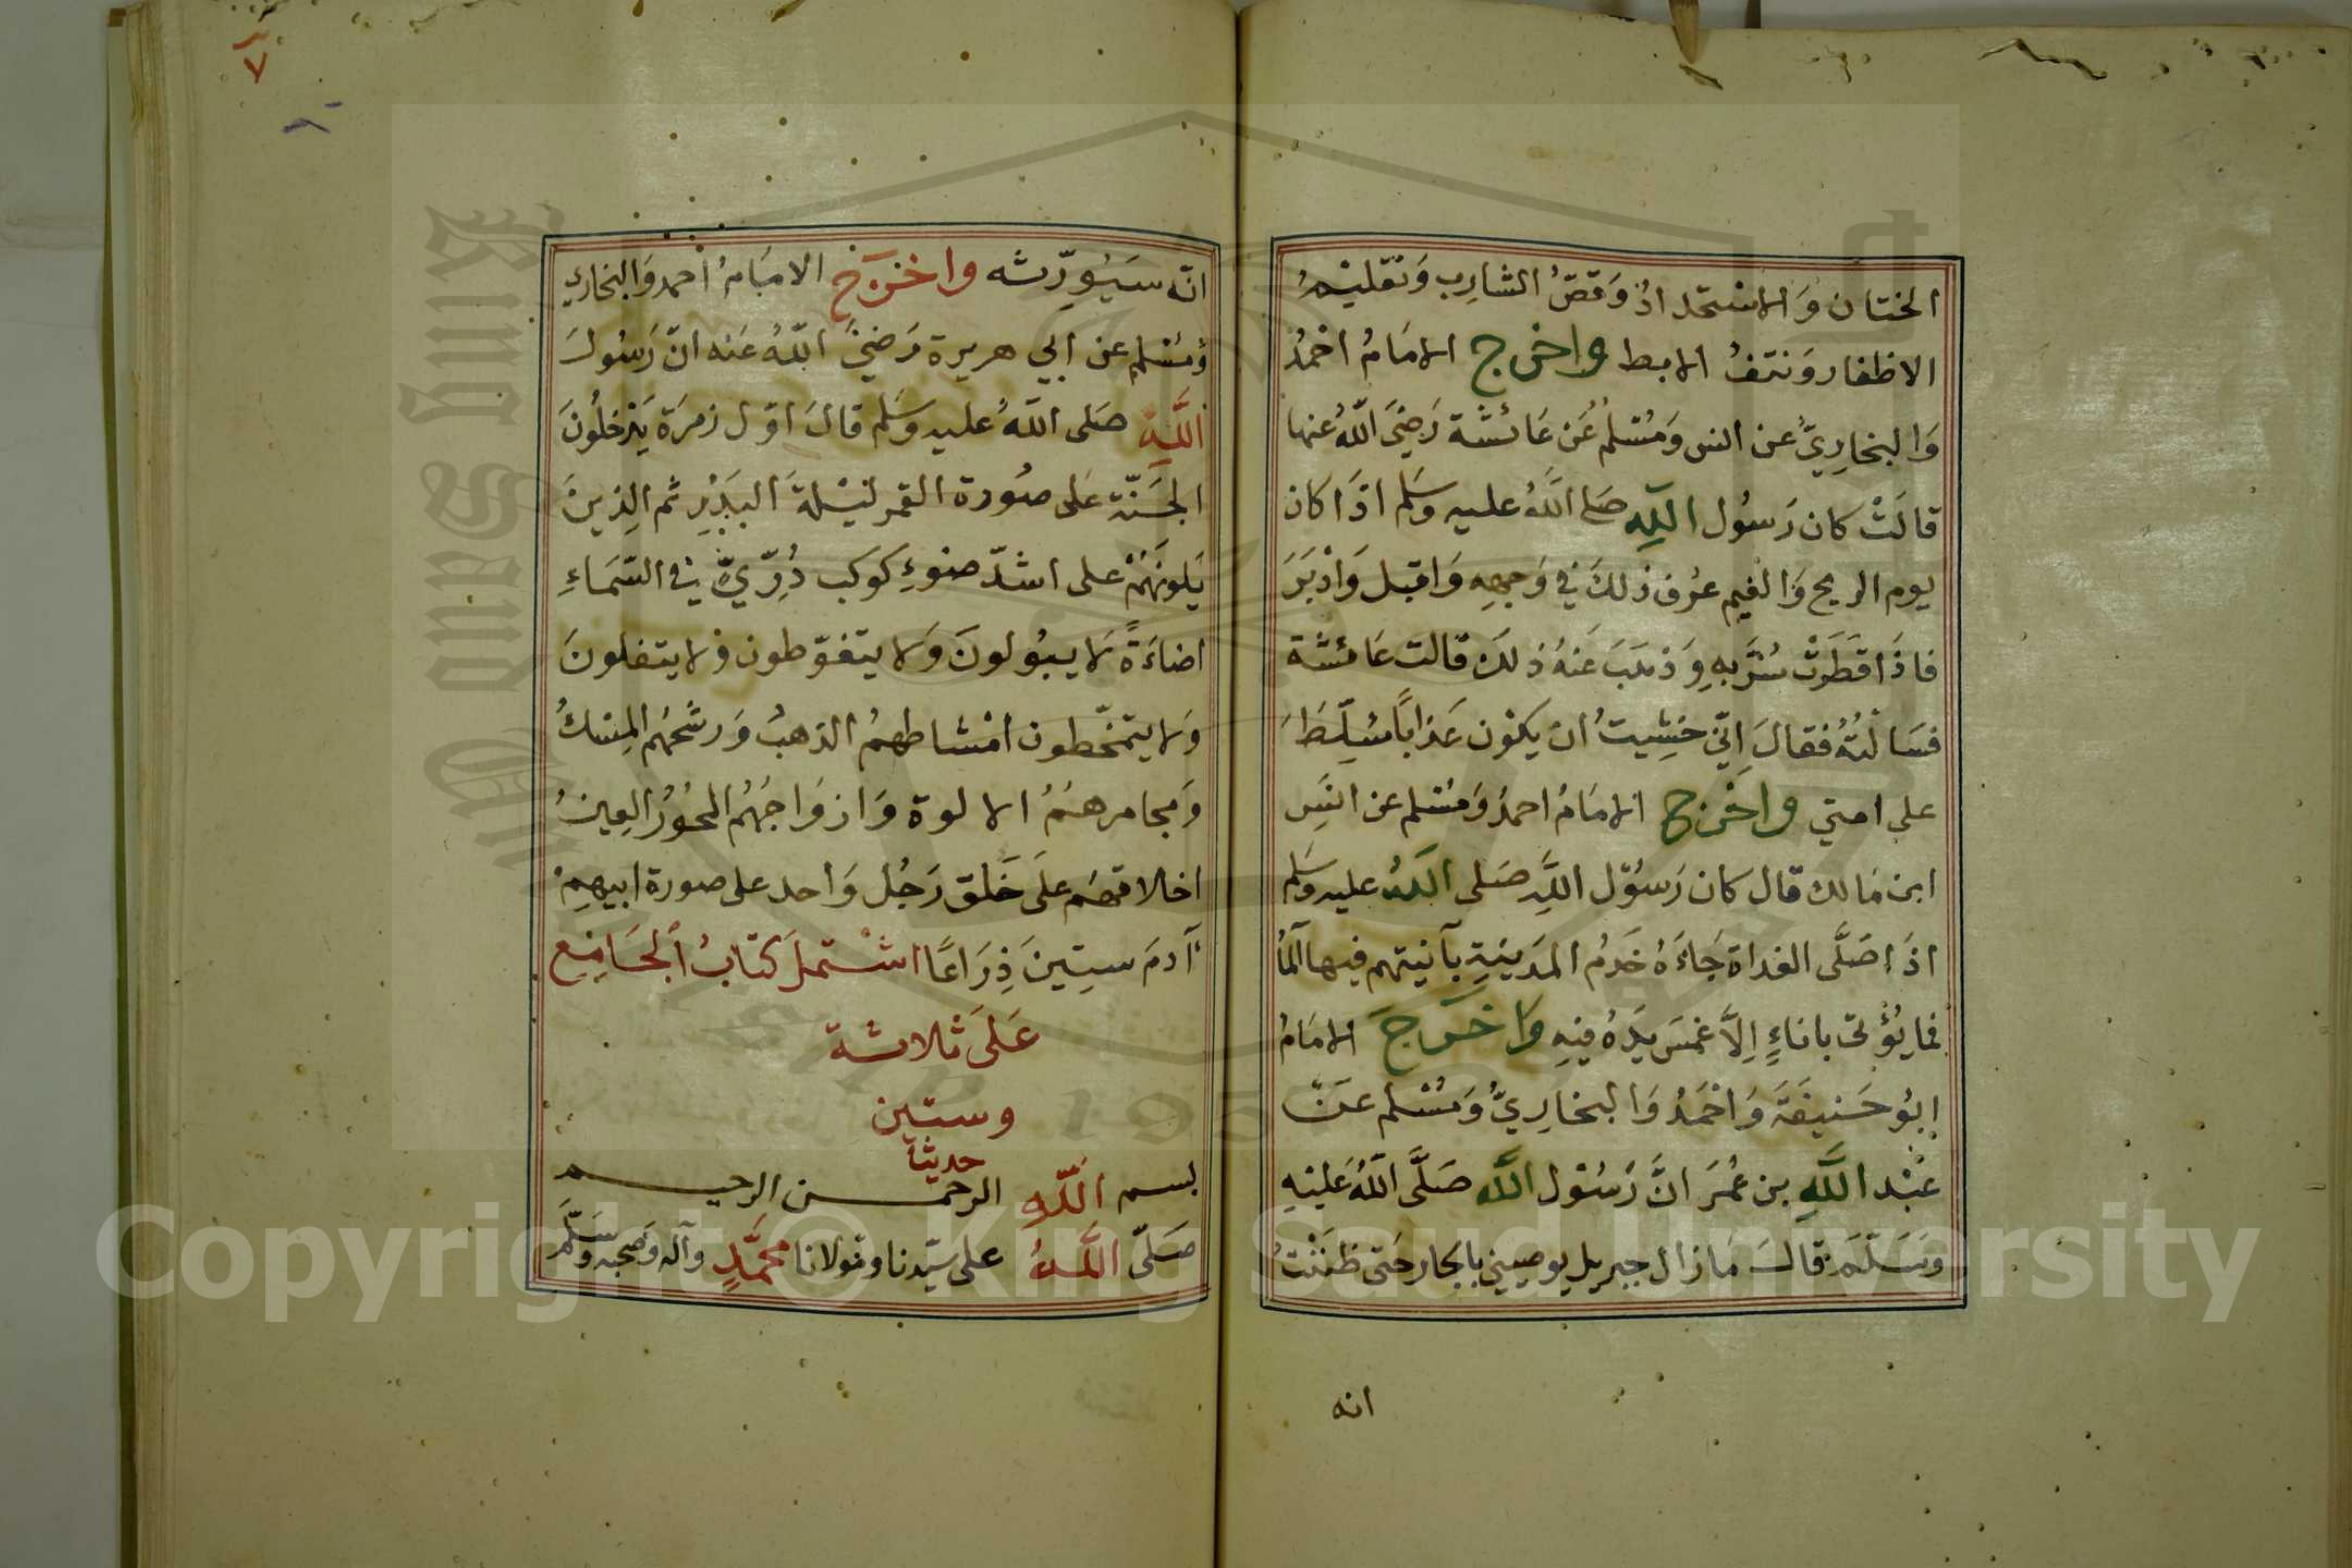 الختان وَالاستحدادُ وَقصّ الشارِب وَتقليمُ
الاظفار وَنتفُ الابط واخرج الامَامُ احْمدُ
وَالبخارِيّ عن انس وَمُسْلمُ عَن عَائشة رَضِيَ اللّهُ عنها
قالَتْ كان رَسُول اللّهِ صَلى اللّهُ عليه وسَلم اذَا كان
يوم الريح وَالغيم عرُف ذلكَ فِي وَجهِهِ وَاقبل وَادْبَرَ
فاذَا قَطَرَتْ سُرَّ بِهِ وَذهَبَ عَنهُ ذلكَ قالت عَائشة
فسَالتهُ فقالَ اِنّي خشِيتُ ان يكوْن عَذاباً سُلِّطَ
على امتي واخْرج الامَامُ احمدُ وَمُسْلم عن انَسِ
ابن مَالك قال كان رَسُوْل اللّهِ صَلى اللّهُ عليه وسَلم
اذَا صَلَّى الغداة جَاءَهُ خَدمُ المَدِينَةِ بآنيتهم فيها المَاءُ
فما يُؤتى باناءٍ اِلاَّ غمسَ يدَهُ فيهِ وَاخرَجَ الامَامُ
ابُو حَنيفَةَ وَاحْمَدُ وَالبخارِيّ وَمُسْلم عَنْ
عَبْد اللّهِ بن عُمَرَ انَّ رَسُوْل اللّه صَلَّى اللّهُ عَليْهِ
وَسَلّمَ قالَ مَازال جبريل يوصيني بالجار حَتى ظنَنْتُ
انه
٧
انّه سَيُورِّثه واخرَج الامَامُ احمد وَالبخاري
وَمُسْلم عن ابي هريرة رَضيَ اللّهُ عَنه انّ رَسُولَ
اللّهِ صَلى اللّهُ عليه وسَلم قالَ اوّل زمرَة يَدْخلُونَ
الجَنّة عَلى صُورة القمر ليْلةَ البَدْرِ ثم الذِينَ
يَلونَهُمْ على اشدّ ضوْءِ كوكَب دُرِّيّ فِي السّمَاءِ
اضَاءَةً لَا يبُولونَ وَلا يتغوّطون وَلا يتفلونَ
وَلا يتمخّطون امْشاطهمُ الذهبُ وَرشحُهم المِسْكُ
وَمجامرهمُ الالوة وَازوَاجُهُمُ الحُورُ العِينُ
اخلاقهم علَى خَلق رَجُل وَاحد على صورة ابيهِمْ
آدمَ سِتِينَ ذِرَاعًا اشتملَ كتابُ الجَامِع
عَلَى ثلاثة
وستين
حديثا
بسم اللّه الرحمن الرحيم
صَلّى اللّهُ على سيّدنا ومَولانا محمَّدٍ وآله وصَحبه وسَلَّم